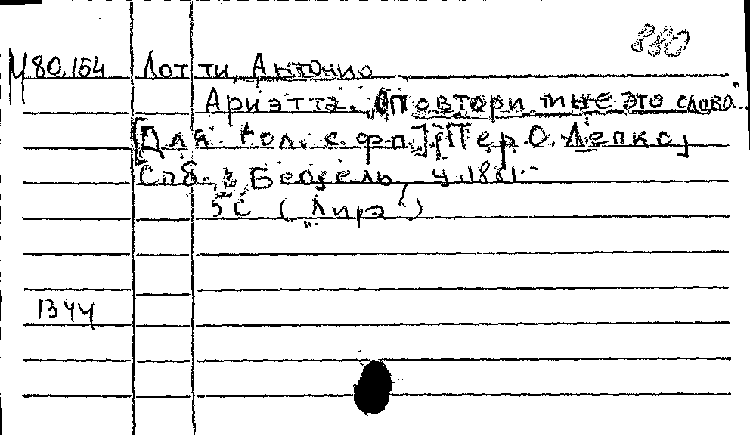 880
М80.154 Лотти, Антонио
Ариэтта. „Повтори мне это слово"..
[Для гол. с фп.] [Пер. О. Лепко]
Спб., Бессель, ц. 1881.
5 с („Лира")
1344